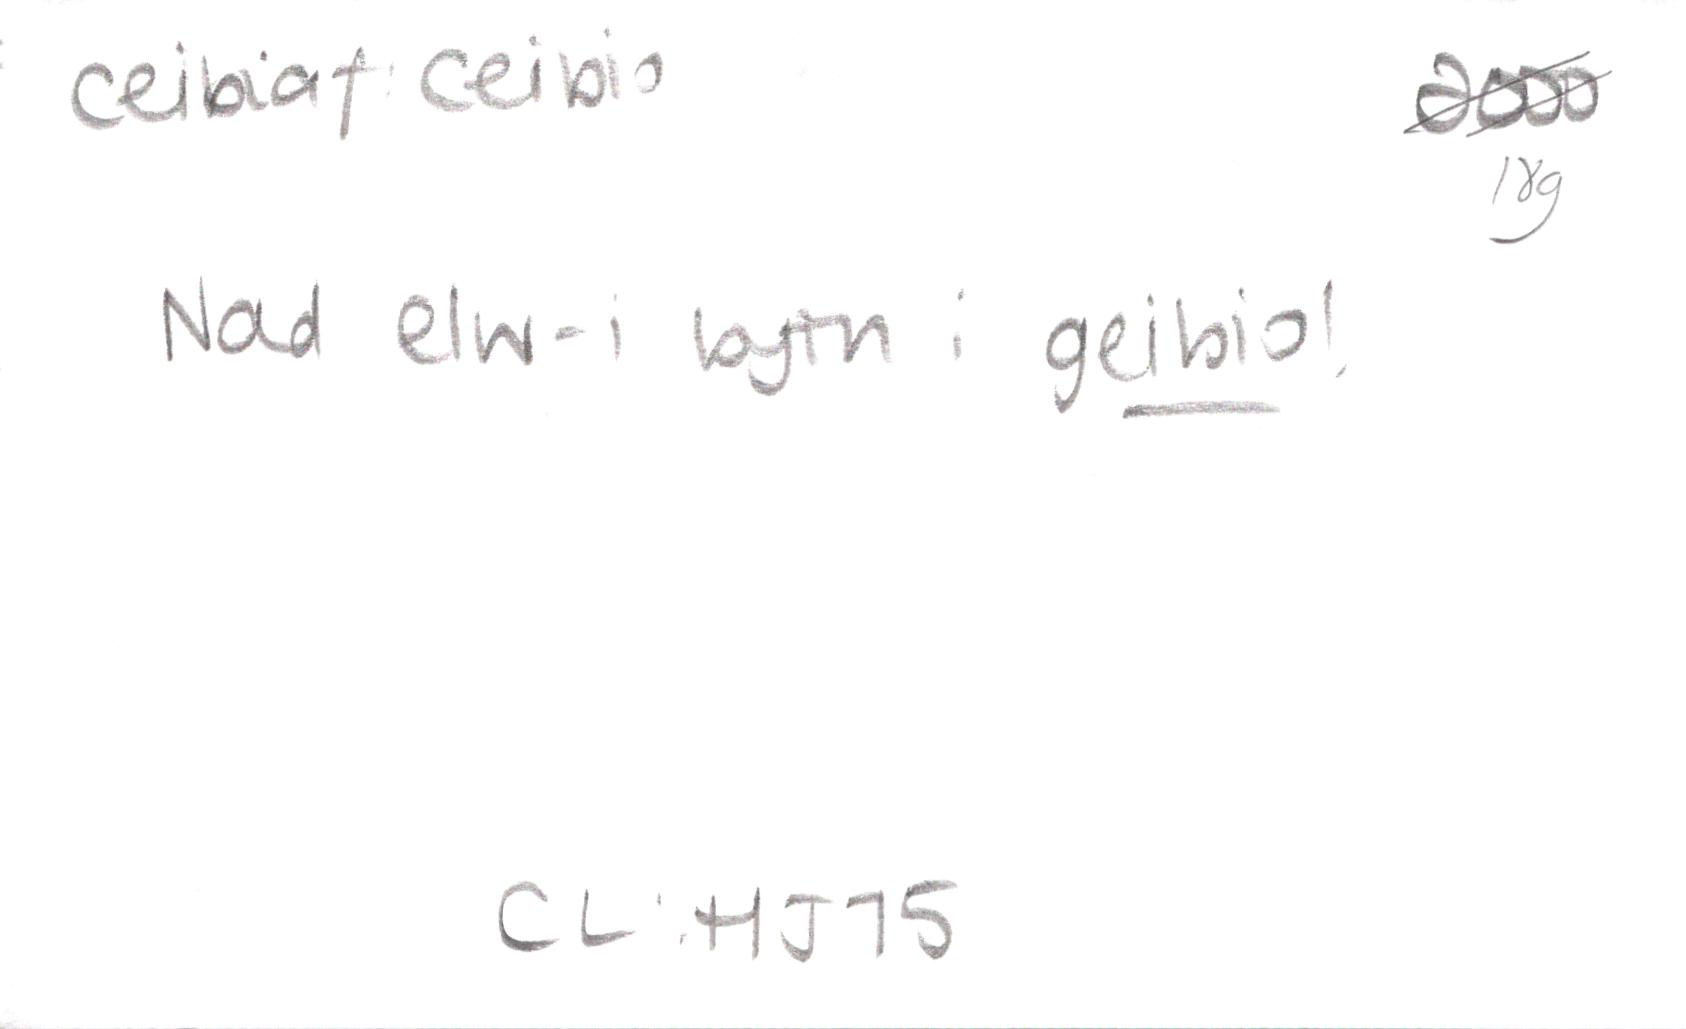 ceibiaf: ceibio
2000
18g
Nad elw-i byth i geibio!
CL: HJ75